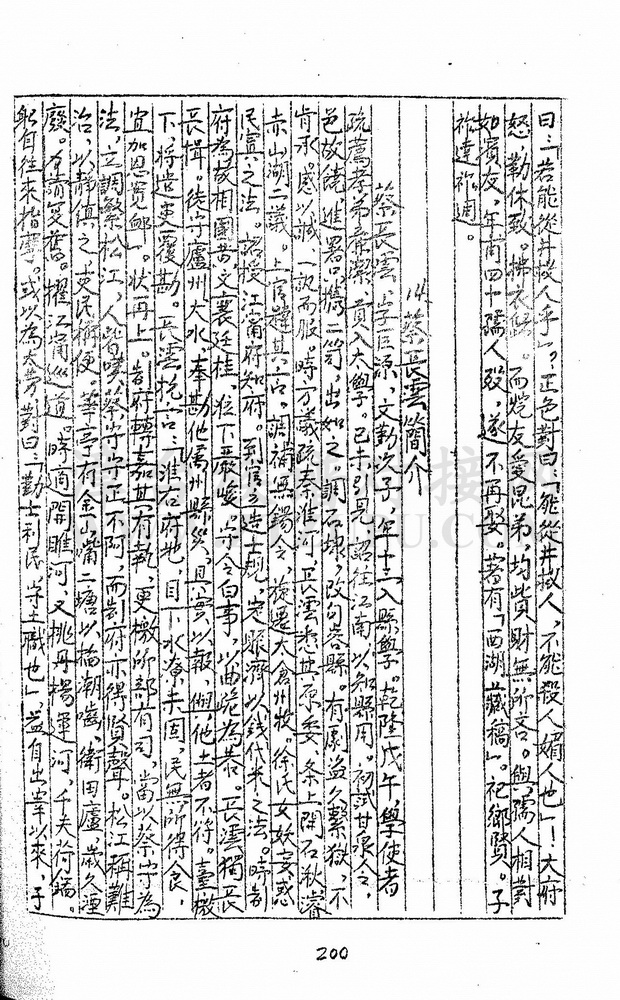 曰：「若能從井救人乎」，正色對曰：「能從井救人，不能殺人媚人也」！大府
怒，勒休致。拂衣歸。而悅友愛昆弟，均貲財無所吝。與孺人相對
如賓友，年甫四十孺人歿，遂不再娶。著有「西湖藏稿」。祀鄉賢。子
祚達祚週。
蔡長雲簡介
蔡長雲，字巨源，文勤次子，年十三入縣學。乾隆戊午學使者
疏薦孝弟廉潔，貢入太學。己未引見，詔往江南以知縣用。初試甘泉令，
邑故繞進署。攜二笥，出如之。調石埭，改句容縣。有康盜久繫獄，不
肯承。感以誠，一訊而服。時方議疏秦淮河，長雲悉其原委，条上開石湫濬
赤山湖二議。上官韙其言。調補無錫令，旋遷太倉州牧。徐氏女妖妄惑
民，寘之法。詔授江甯府知府。到官立造士規，定賑濟以錢代米之法。時制
府為故相國黃文襄廷桂，狂下嚴峻，守令白事，以曲跪為恭。長雲獨長
長揖。徙守廬州大水，奉勘他屬州縣災，具實以報，側他土者不符。臺檄
下，將遣吏覆勘。長雲抗言：「淮右府地，目下水奪未固，民無所得食，
宜加恩寬卹」。狀再上。制府轉嘉其有執，更檄所部有司，當以蔡守為
法，立調繁松江，人皆嘆蔡守守正不阿，而制府亦得賢聲。松江稱難
治，以靜鎮之吏民稱便。華亭有金嘴二塘以捍潮嚙，衛田廬歲久湮
廢。力請复舊。擢江甯巡道。時適開睢河，又挑丹楊運河，千夫荷鍤。
躬自往來指麾。或以為太勞對曰：「勤士利民，守土職也」，益自出宰以來，子
200